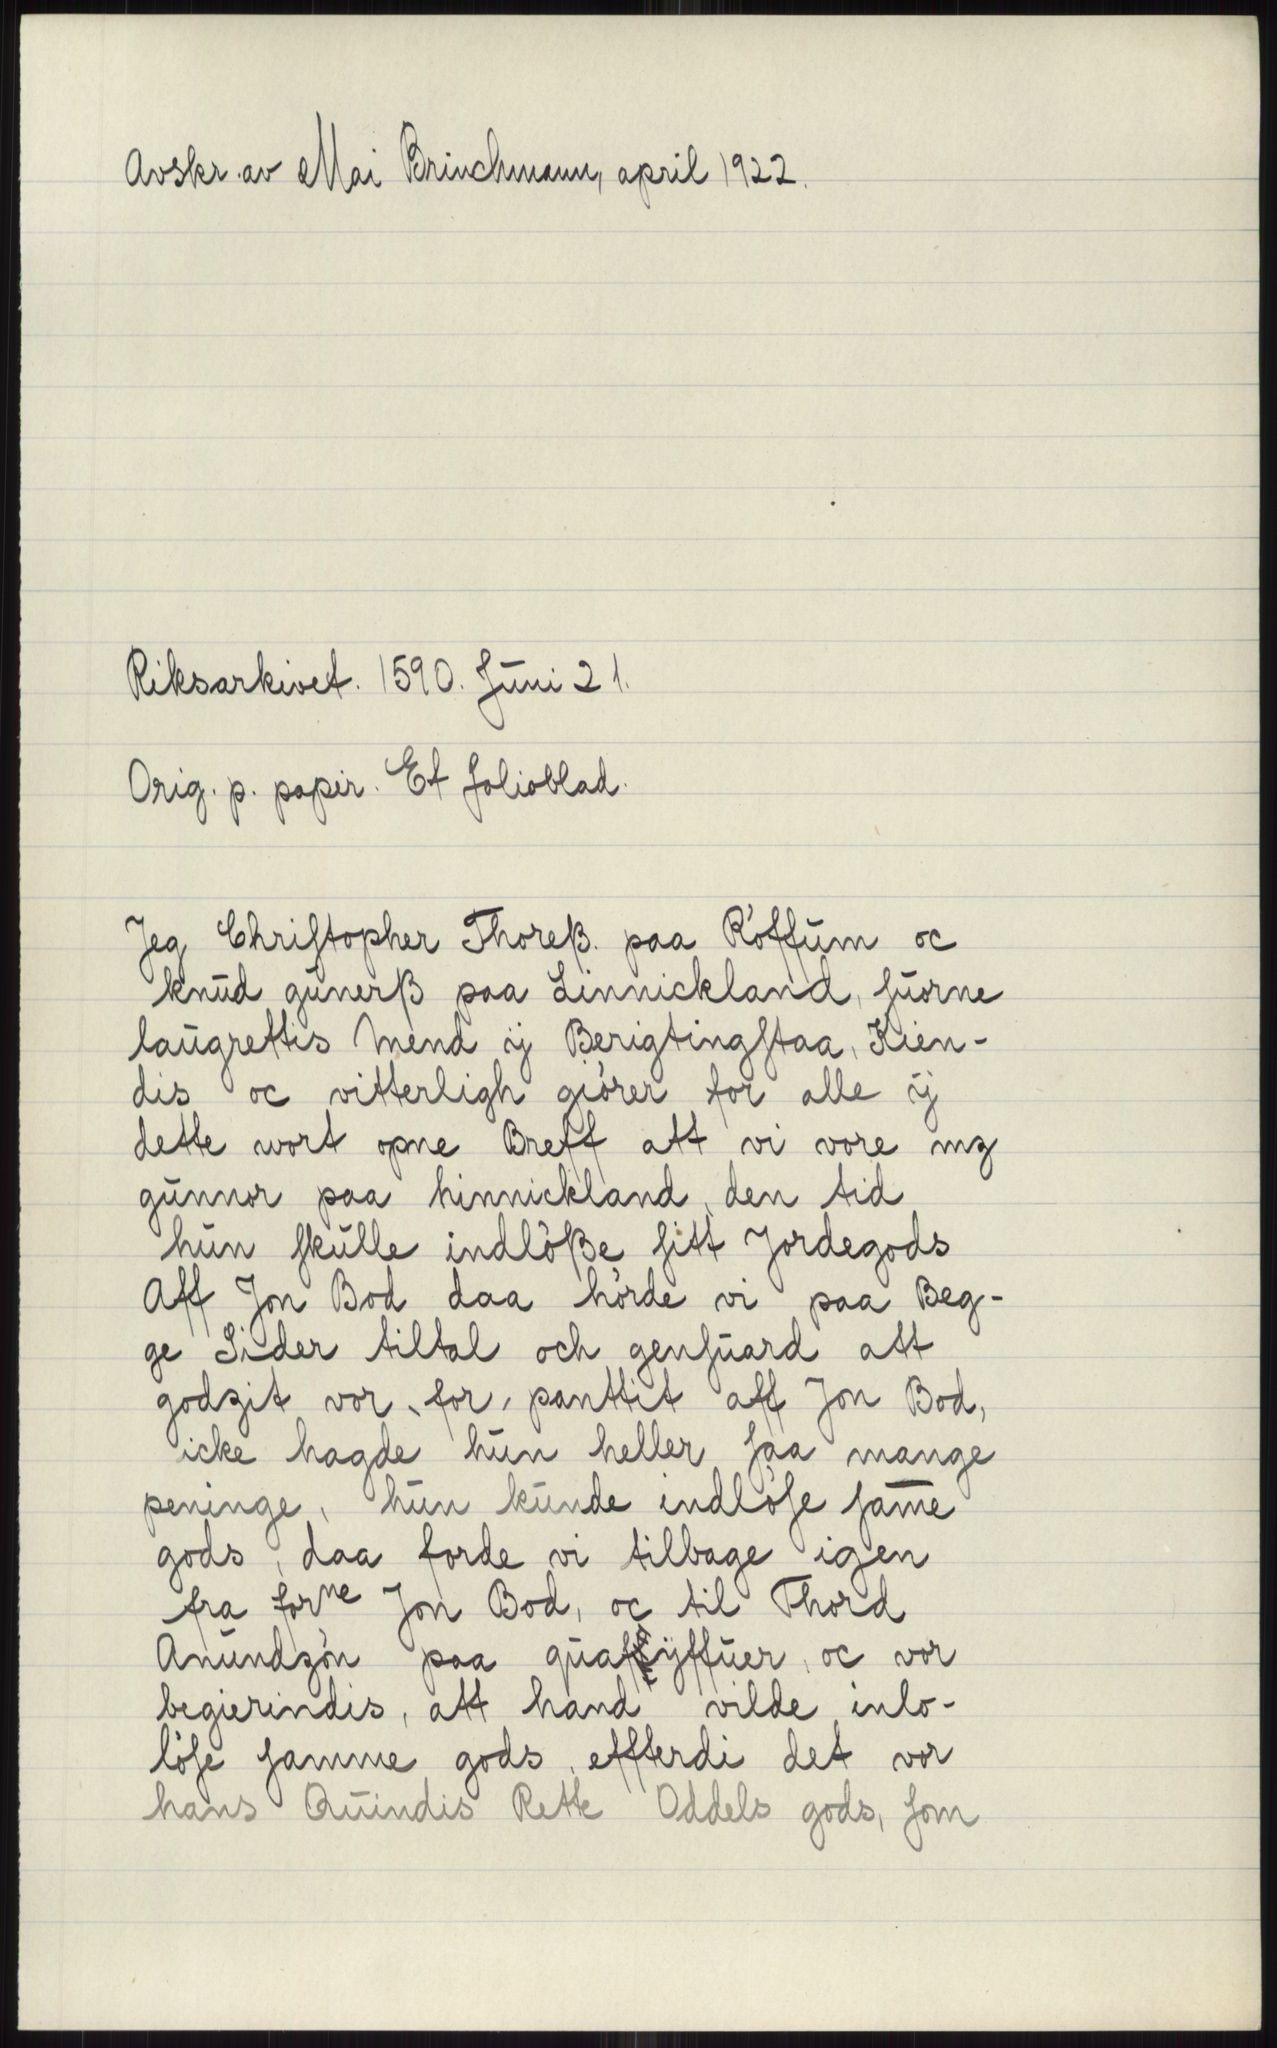 Avskr. av Mai Brinchmann, april 1922.
Riksarkivet. 1590. Juni 21.
Orig. p. papir. Et folioblad.
Jeg Chriſtopher Thoreß. paa Röffüm oc
knüd günerß paa Linnickland, ſuorne
laügrettis Mend ij Berigtingſtaa, Kien-
dis oc vitterligh giörer for alle ij
dette wort opne Breff att vi vore mꝫ
günnor paa hinnickland, den tid
hün ſkülle indlöße ſitt Jordegods
Aff Jon Bod daa hörde vi paa Beg-
ge Sider tiltal och genſüard att
godzit vor, for, panttit aff Jon Bod,
icke hagde hün heller ſaa mange
peninge, hün künde indlöſe ſam̅e
gods, daa forde vi tilbage igen
fra forne Jon Bod, oc til Thord
Anundzön paa , oc vor
begierindis, att hand vilde inlo-
löſe ſamme gods, effterdi det vor
hans Qüindis Rette Oddels gods, ſom